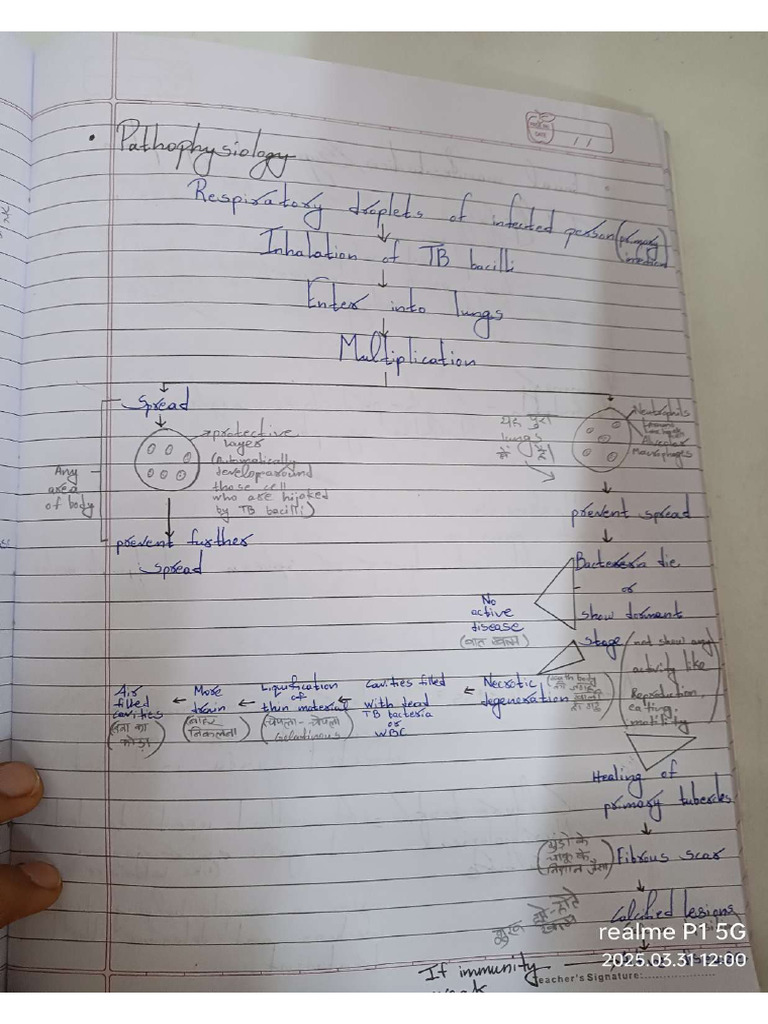 PAGE NO.
DATE
/ /
• Pathophysiology
Respiratory droplets of infected person (primary
Inhalation of TB bacilli
Enter into lungs
Multiplication
Spread
protective
layer
(Automatically
develop around
those cell
who are hijoked
by TB bacilli)
Any
area
of body
prevent further
spread
यह पुरा
lungs
में
Neutrophils
Alveolar
Macrophages
prevent spread
Bactereria die
or
show dorment
stage
(not show any
activity like
Reproduction,
eating,
motility)
No
active
disease
(बात खत्म)
Necrotic
degeneration
Cavities filled
with dead
TB bacteria
or
WBC
Liquification
of
thin material
(चिपला-चिपला
Gelatinous)
More
drain
(बाहर
निकलना)
Air
filled
cavities
(हवा का
Healing of
primary tubercles
Fibrous scar
(गुंडो के
चाकू के
निशान जैसा)
Calcified lesions
If immunity
Teacher's Signature:
realme P1 5G
2025.03.31 12:00